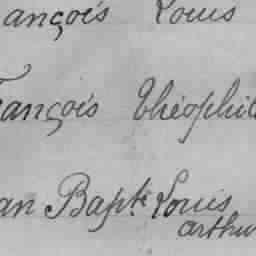 ançois Louis
rançois Théophil
an Bapte Louis
arthu